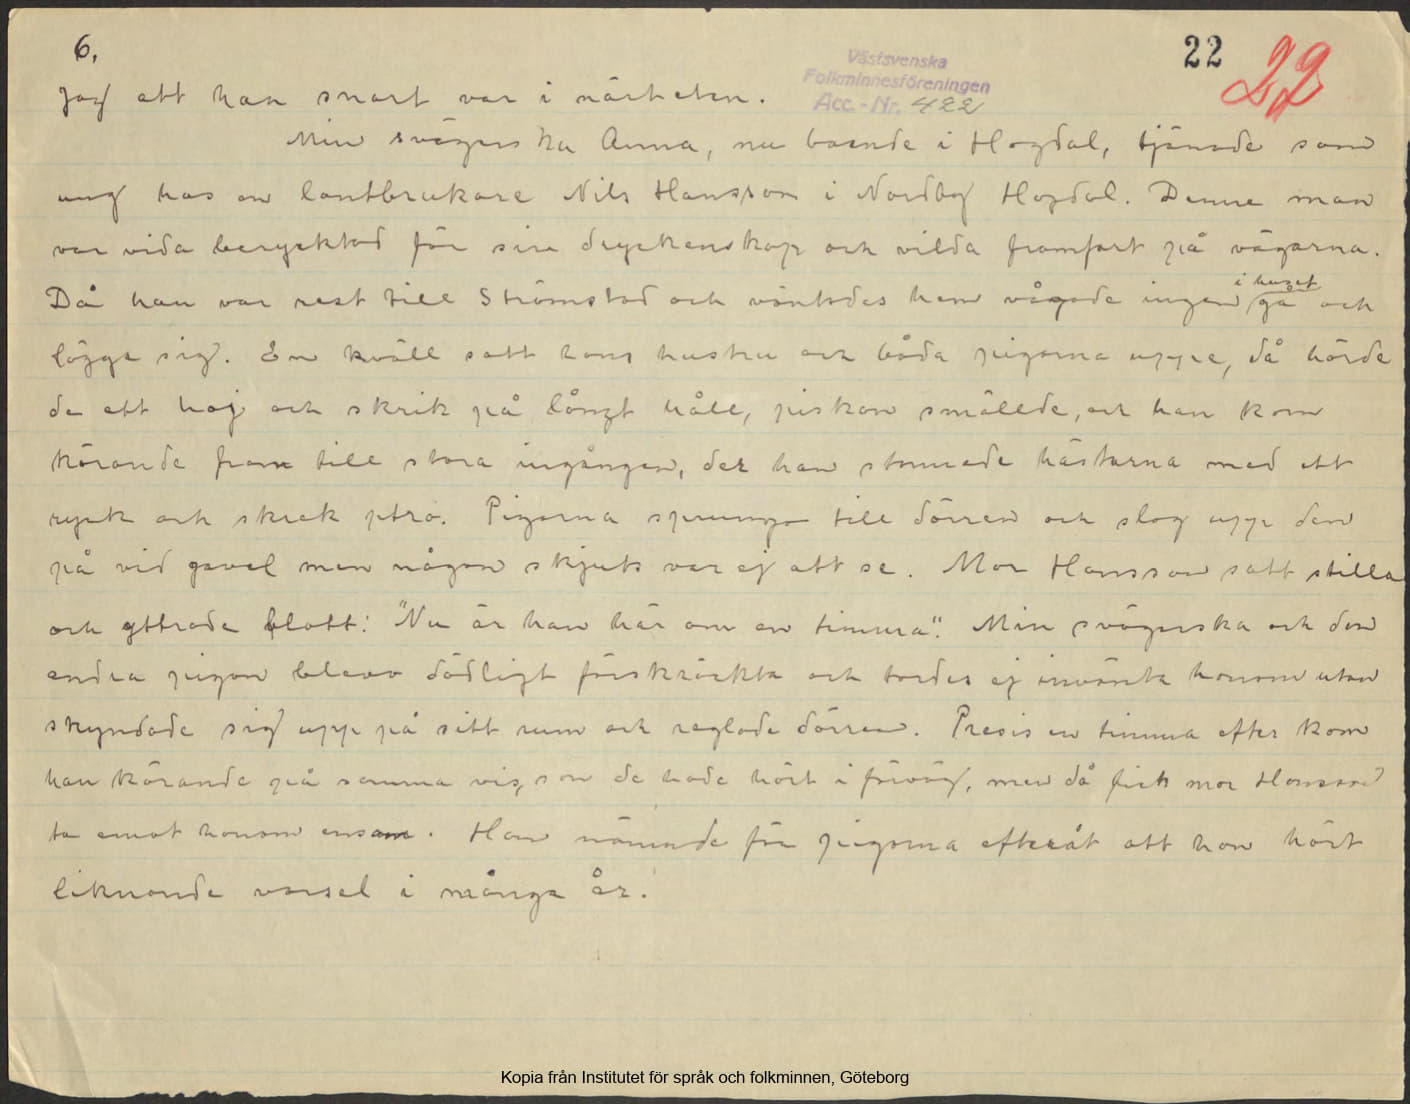 6.
22 22
Västsvenska
Folkminnesföreningen
Acc.-Nr. 422
jag att han snart var i närheten.
Min svägerska Anna, nu boende i Hogdal, tjänade som
ung hos en lantbrukare Nils Hansson i Nordby Hogdal. Denne man
var vida beryktad för sin dryckenskap och vilda framfart på vägarna.
i huset
Då han var rest till Strömstad och väntades hem vågade ingen gå och
lägga sig. En kväll satt hans hustru och båda pigorna uppe, då hörde
de ett hoj och skrik på långt håll, piskan smällde, och han kom
körande fram till stora ingången, der han stannade hästarna med ett
ryck och skrek ptro. Pigorna sprungo till dörren och slog upp den
på vid gavel men någon skjuts var ej att se. Mor Hansson satt stilla
och yttrade blott: "Nu är han här om en timma". Min svägerska och den
andra pigan blevo dödligt förskräckta och tordes ej invänta honom utan
skyndade sig upp på sitt rum och reglade dörren. Presis en timma efter kom
han körande på samma vis, som de hade hört i förväg, men då fick mor Hansson
ta emot honom ensam. Hon nämnde för pigorna efteråt att hon hört
liknande varsel i många år.
Kopia från Institutet för språk och folkminnen, Göteborg